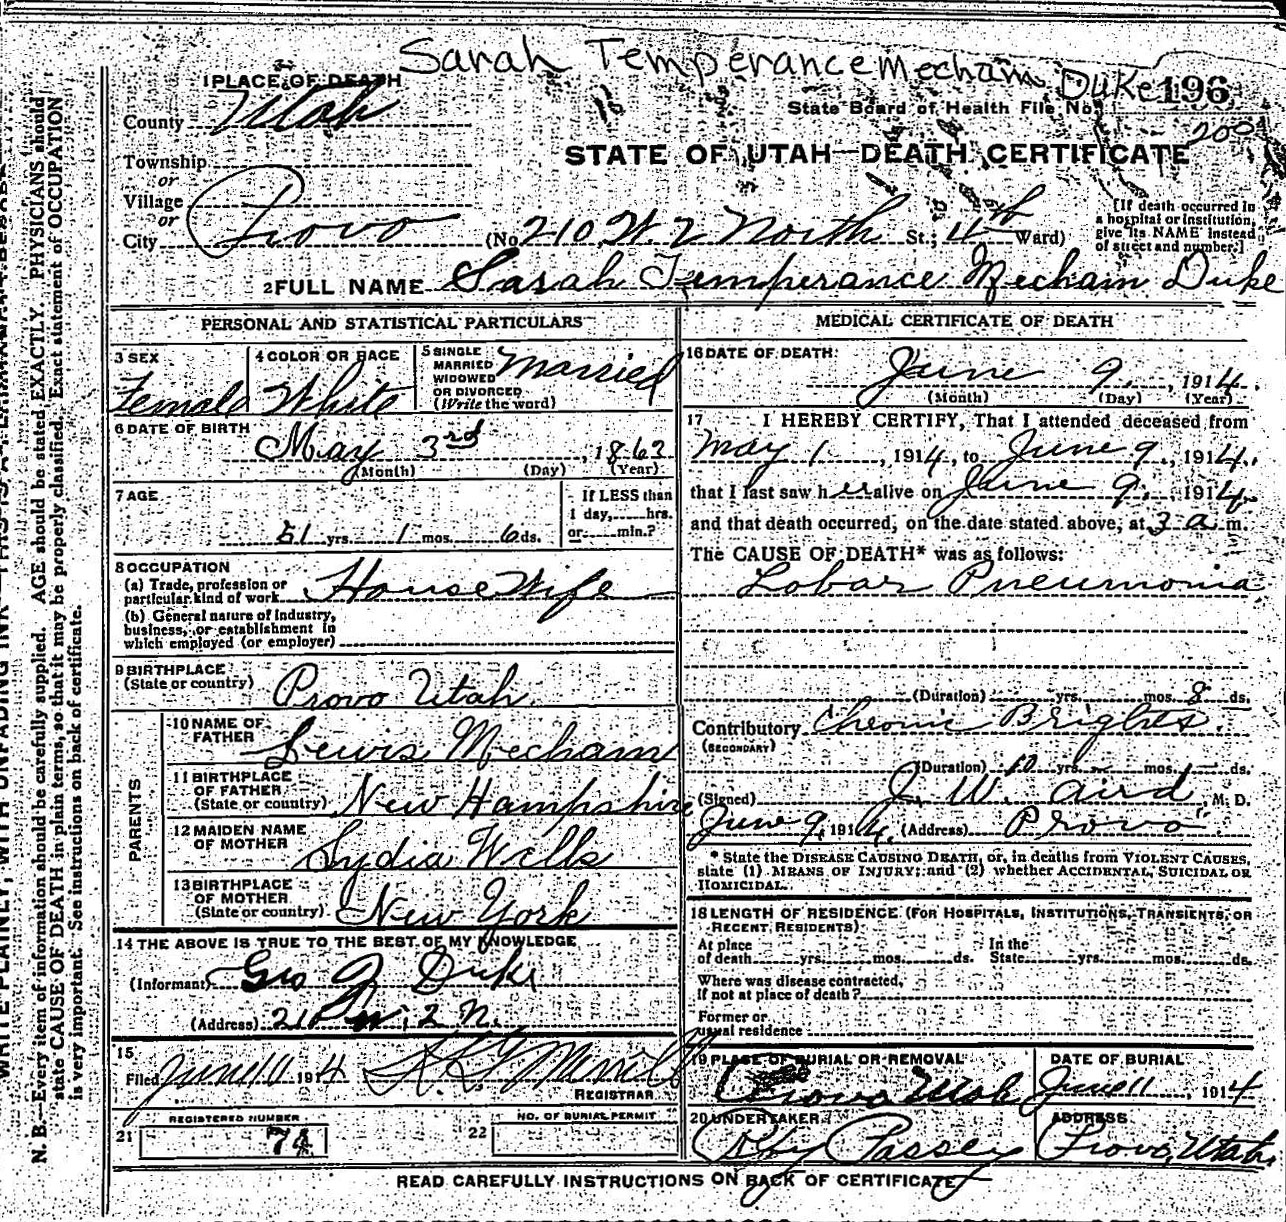 Sarah Temperance Mecham Duke
1 PLACE OF DEATH
196
State Board of Health File No.
200
County Utah
STATE OF UTAH—DEATH CERTIFICATE
Township
or
Village
or
City Provo (No. 210 W. 2 North St.; 4th Ward)
[If death occurred in
a hospital or institution,
give its NAME instead
of street and number.]
2 FULL NAME Sarah Temperance Mecham Duke
PERSONAL AND STATISTICAL PARTICULARS
3 SEX
Female
4 COLOR OR RACE
White
5 SINGLE
MARRIED
WIDOWED
OR DIVORCED
(Write the word)
Married
6 DATE OF BIRTH
May 3rd, 1863
(Month) (Day) (Year)
7 AGE
51 yrs. 1 mos. 6 ds.
If LESS than
1 day, hrs.
or min.?
8 OCCUPATION
(a) Trade, profession or
particular kind of work House Wife
(b) General nature of industry,
business, or establishment in
which employed (or employer)
9 BIRTHPLACE
(State or country) Provo Utah
PARENTS
10 NAME OF
FATHER Lewis Mecham
11 BIRTHPLACE
OF FATHER
(State or country) New Hampshire
12 MAIDEN NAME
OF MOTHER Lydia Wells
13 BIRTHPLACE
OF MOTHER
(State or country) New York
14 THE ABOVE IS TRUE TO THE BEST OF MY KNOWLEDGE
(Informant) Geo J Duke
(Address) 210 W. 2 N.
15
Filed June 10 1914 Merrill
REGISTRAR
REGISTERED NUMBER
21 74
NO. OF BURIAL PERMIT
22
MEDICAL CERTIFICATE OF DEATH
16 DATE OF DEATH:
June 9, 1914.
(Month) (Day) (Year)
17 I HEREBY CERTIFY, That I attended deceased from
May 1, 1914, to June 9, 1914.
that I last saw her alive on June 9, 1914
and that death occurred, on the date stated above, at 3 a m.
The CAUSE OF DEATH* was as follows:
Lobar Pneumonia
(Duration) yrs. mos. 8 ds.
Contributory Chronic Brights
(SECONDARY)
(Duration) 10 yrs. – mos. – ds.
(Signed) J. W. Aird, M. D.
June 9, 1914. (Address) Provo
* State the DISEASE CAUSING DEATH, or, in deaths from VIOLENT CAUSES,
state (1) MEANS OF INJURY; and (2) whether ACCIDENTAL, SUICIDAL OR
HOMICIDAL.
18 LENGTH OF RESIDENCE (FOR HOSPITALS, INSTITUTIONS, TRANSIENTS, OR
RECENT RESIDENTS)
At place In the
of death yrs. mos. ds. State yrs. mos. ds.
Where was disease contracted,
if not at place of death?
Former or
usual residence
19 PLACE OF BURIAL OR REMOVAL
Provo Utah
DATE OF BURIAL
June 11, 1914
20 UNDERTAKER
Passey
ADDRESS
Provo, Utah.
READ CAREFULLY INSTRUCTIONS ON BACK OF CERTIFICATE
N. B.—Every item of information should be carefully supplied. AGE should be stated EXACTLY. PHYSICIANS should
state CAUSE OF DEATH in plain terms, so that it may be properly classified. Exact statement of OCCUPATION
is very important. See instructions on back of certificate.